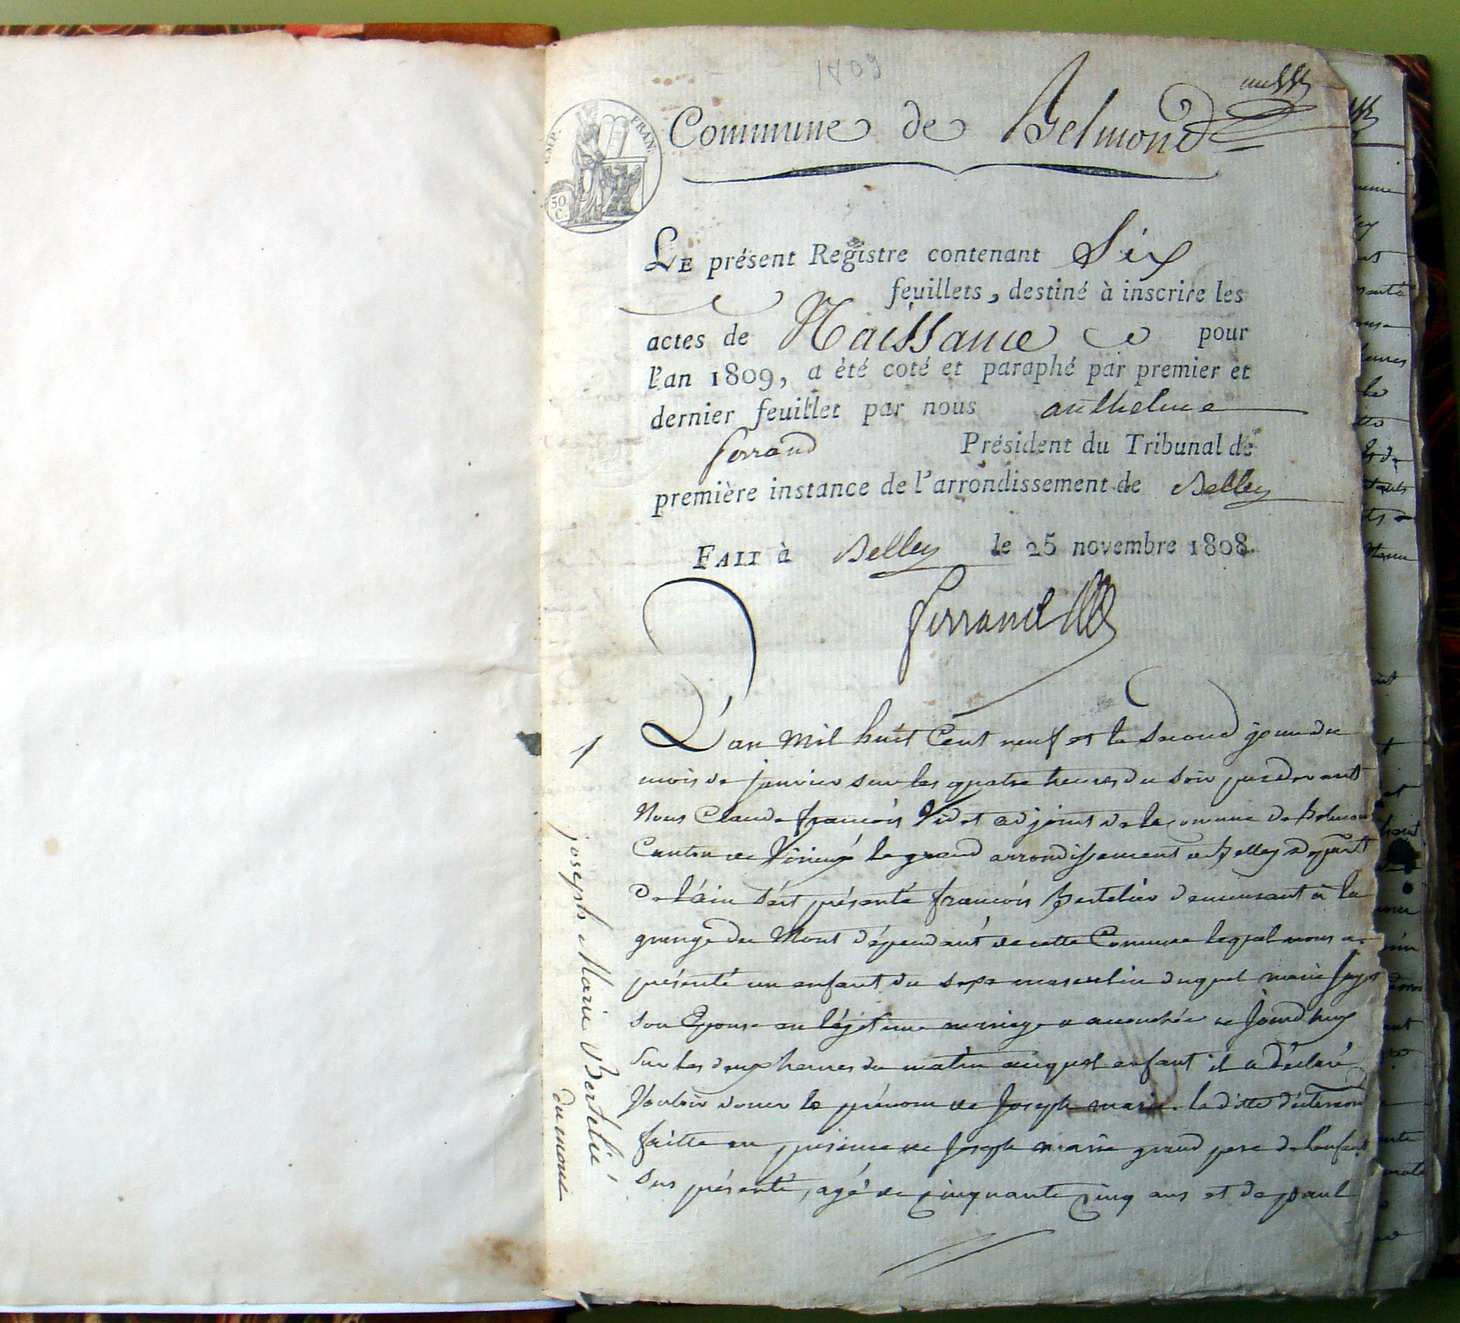 1809
Commune de Belmond
EMP. FRAN.
50 C.
LE présent Registre contenant Six
feuillets, destiné à inscrire les
actes de Naissance pour
l'an 1809, a été coté et paraphé par premier et
dernier feuillet par nous anthelme
ferrand Président du Tribunal de
première instance de l'arrondissement de Belley
FAIT à Belley le 25 novembre 1808.
ferrand
1
joseph Marie Bertélié
du mont
L'an mil huit Cent neuf et le Second jour du
mois de janvier sur les quatre heures du Soir par devant
Nous Claude françois adjoint de la Commune de Belmond
Canton de Virieux le grand arrondissement de Belley Départt
De l'ain s'est présenté françois Bertelier demeurant à la
grange du Mont dépendant de cette Commune lequel nous a
présenté un enfant du Sexe masculin duquel marie
son Epouse en légitime mariage a accouchée ce Jourd'huy
sur les deux heures du matin auquel enfant il a déclaré
Vouloir donner le prénom de Joseph marie. la ditte déclaration
faitte en présence de Joseph marie grand pere de l'enfant
sus présenté, agé de cinquante cinq ans et de paul